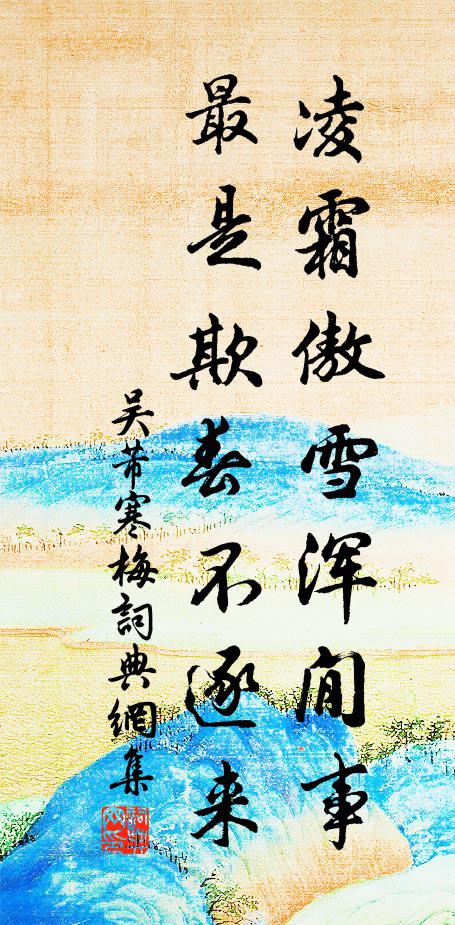 凌霜傲雪浑闲事
最是欺春不逐来
吴芾寒梅詞典網集